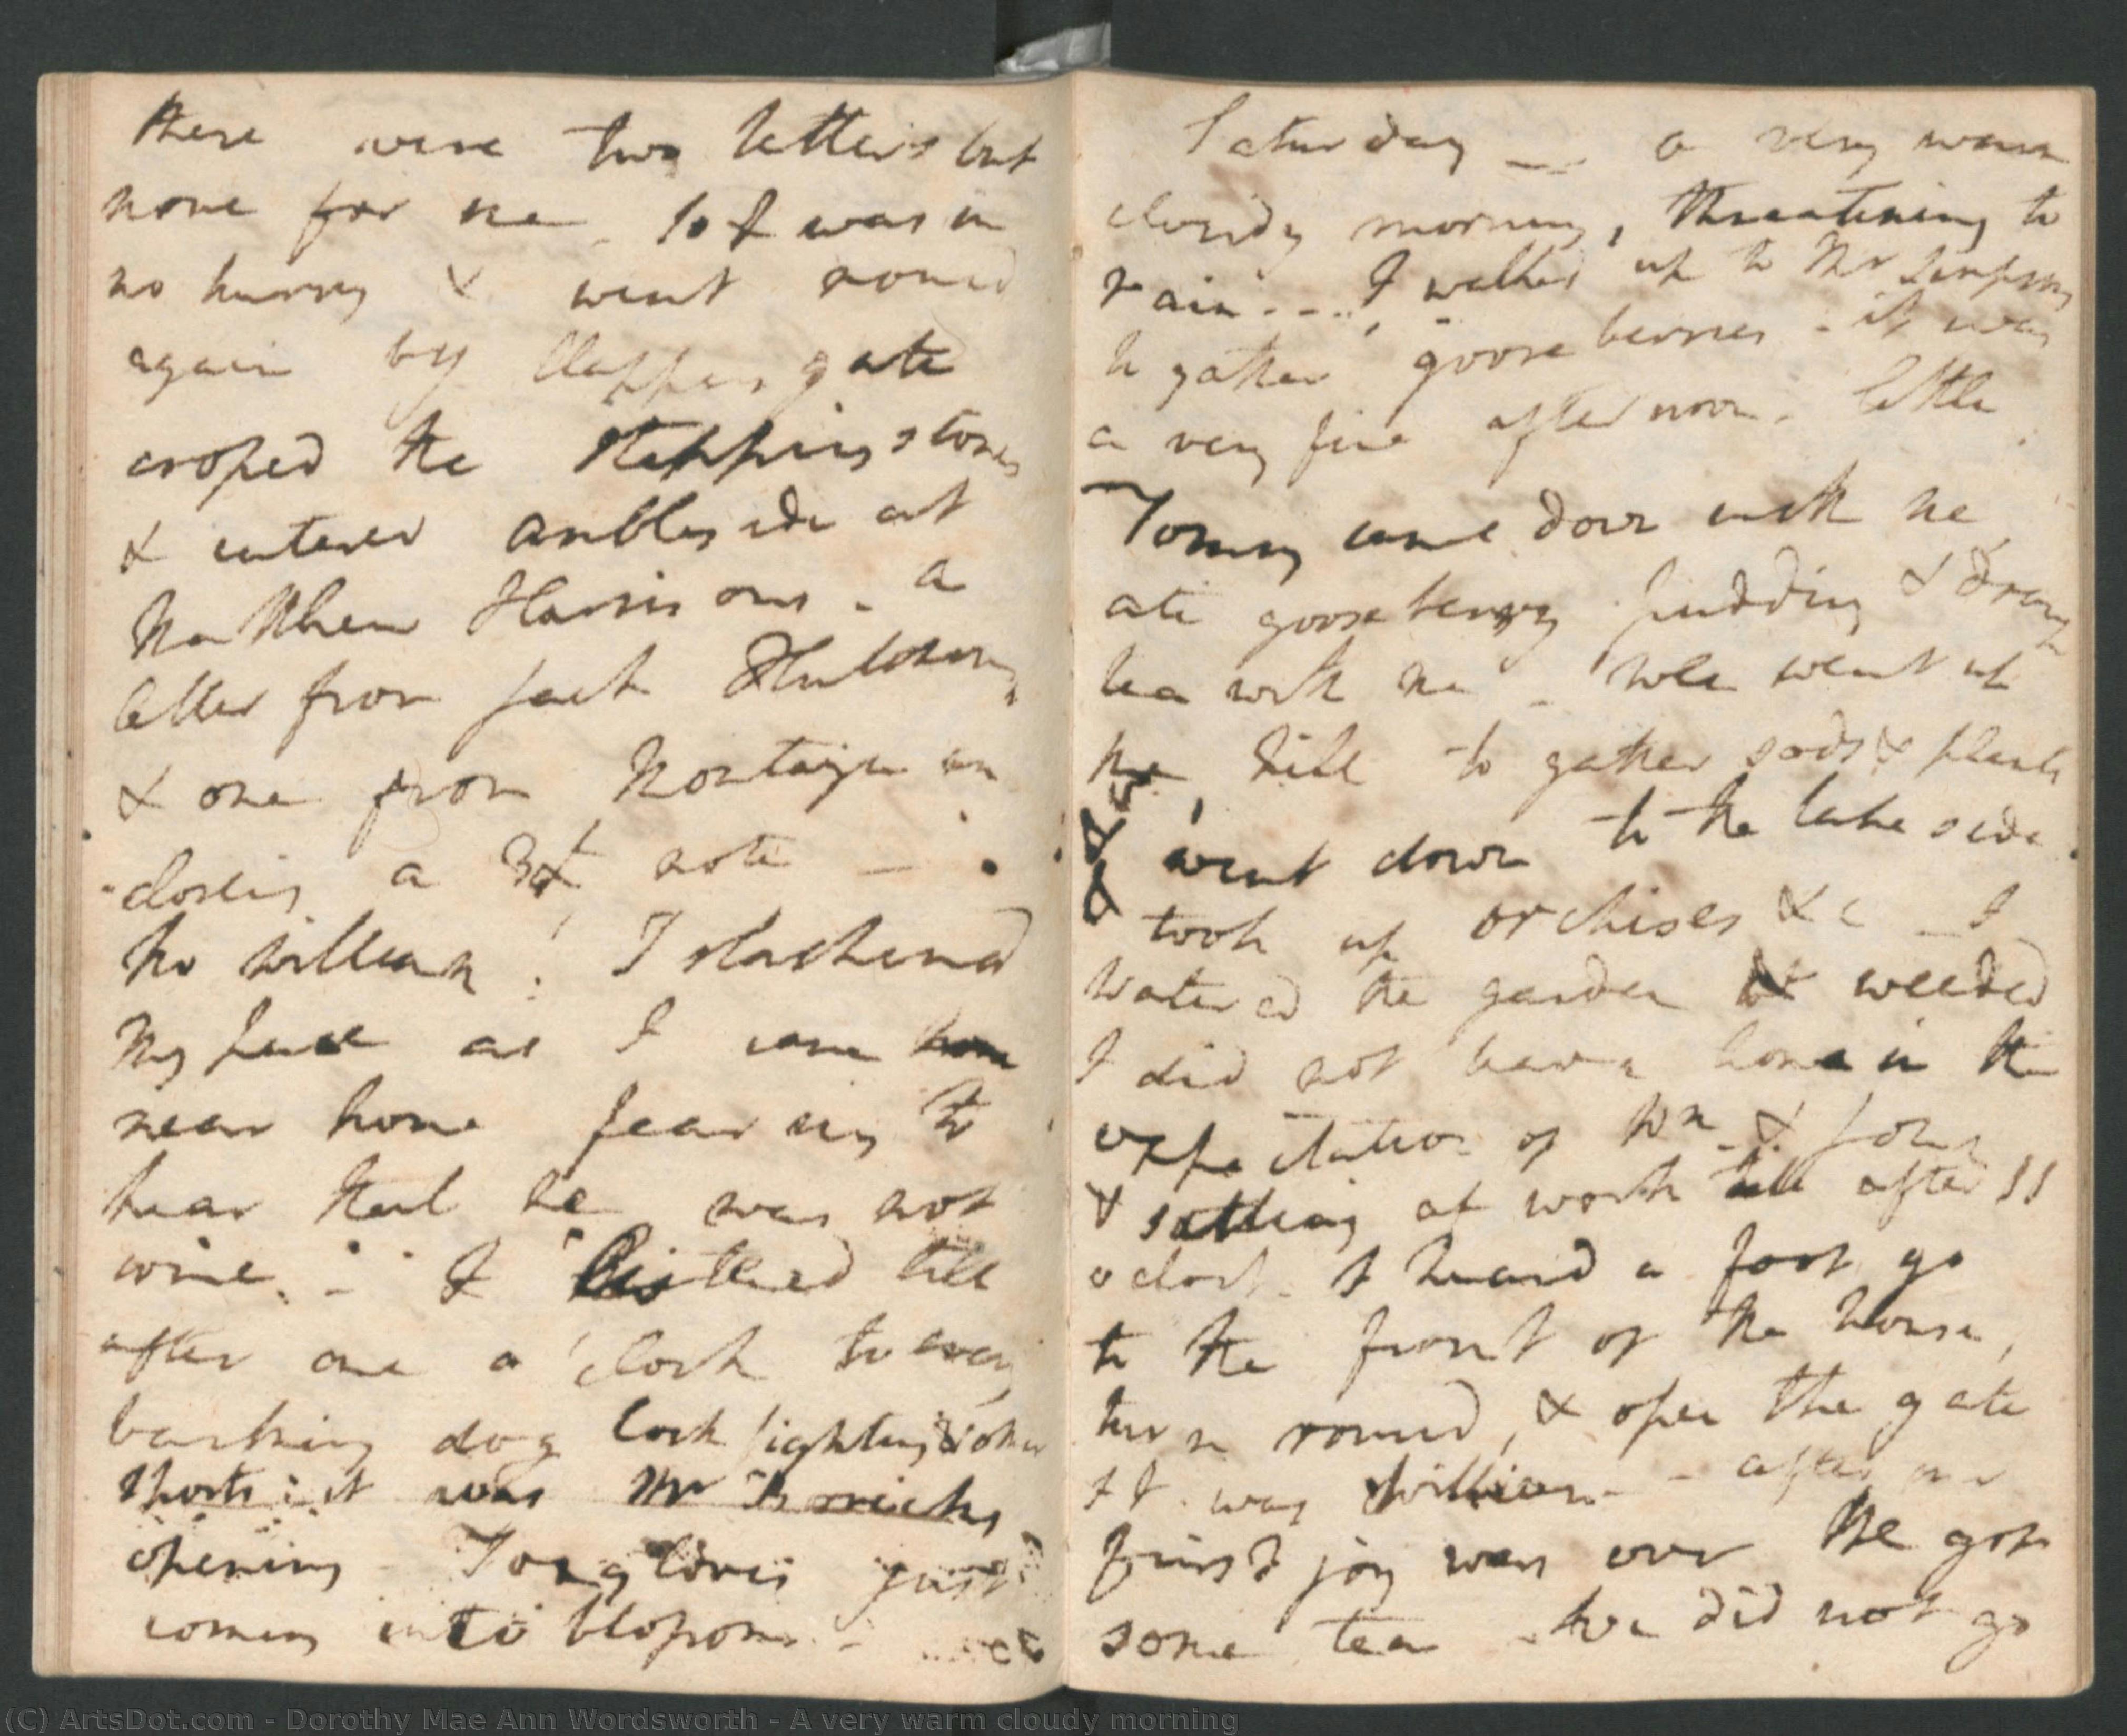 there were two letters but
none for me. So I was in
no hurry & went round
again by Clappersgate
crossed the stepping stones
& entered Ambleside at
Matthew Harrisons. a
letter from Jack Hutchinson,
& one from Montagu en
closing a 3£ note —
No William! I slackened
my pace as I came
near home fearing to
hear that he was not
come. — I listened till
after one o'clock to every
barking dog Cock fighting & other
sports: it was Mr Borwicks
opening Foxgloves just
coming into blossom. —
Saturday — a very warm
cloudy morning, threatening to
rain... I walked up to Mr Simpsons
to gather gooseberries - it was
a very fine afternoon. little
Tommy came down with me
ate gooseberry pudding & drank
tea with me — We went up
the hill to gather sods & plants
& went down to the lake side
& took up orchises &c — I
watered the garden & weeded
I did not leave home in the
expectation of Wm & John
& sitting at work till after 11
oclock I heard a foot go
to the front of the house,
turn round, & open the gate
It was William — after our
first joy was over We got
some tea — We did not go
(C) ArtsDot.com - Dorothy Mae Ann Wordsworth - A very warm cloudy morning